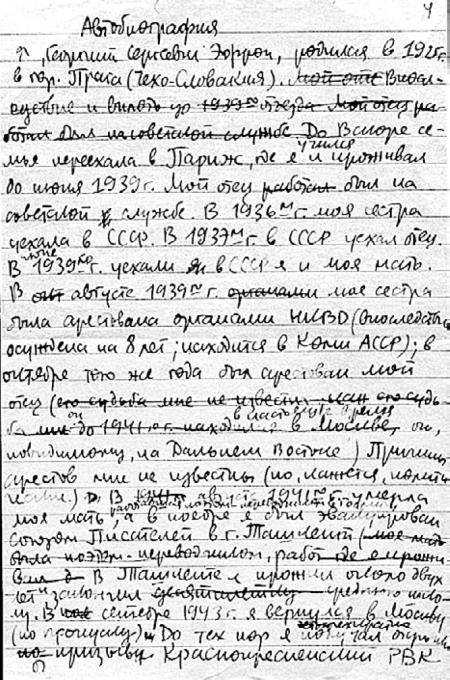 4
Автобиография
Я, Георгий Сергеевич Эфрон, родился в 1925 г.
в гор. Прага (Чехо-Словакия). Мой оте Впосл-
едствие и вплоть до 1939го отъезда Мой отец ра-
ботал был на советской службе До Вскоре се-
мья переехала в Париж, где я учился и проживал
до июня 1939 г. Мой отец работал был на
советской службе. В 1936м г. моя сестра
уехала в СССР. В 1937м г. в СССР уехал отец.
В июне 1939го г. уехали в СССР я и моя мать.
В августе 1939го г. органами моя сестра
была арестована органами НКВД (впоследствии
осуждена на 8 лет; находится в Коми АССР); в
октябре того же года был арестован мой
отец (его судьба мне не известна; его судь-
ба мне до 1941го г. он находился в Москве, в настоящее время он,
повидимому, на Дальнем Востоке) Причины
арестов мне не известны (но, кажется, полити-
ческие.) В августе 1941го г. умерла
моя мать, а в ноябре я был эвакуирован
Союзом Писателей в г. Ташкент (моя мать
была поэтом-переводчиком,
В Ташкенте я прожил около двух
лет и закончил десятилетку среднюю шко-
лу. В сентябре 1943 г. я вернулся в Москву
(по пропуску) До тех пор я получал отсрочки
по призыву Краснопресненский РВК